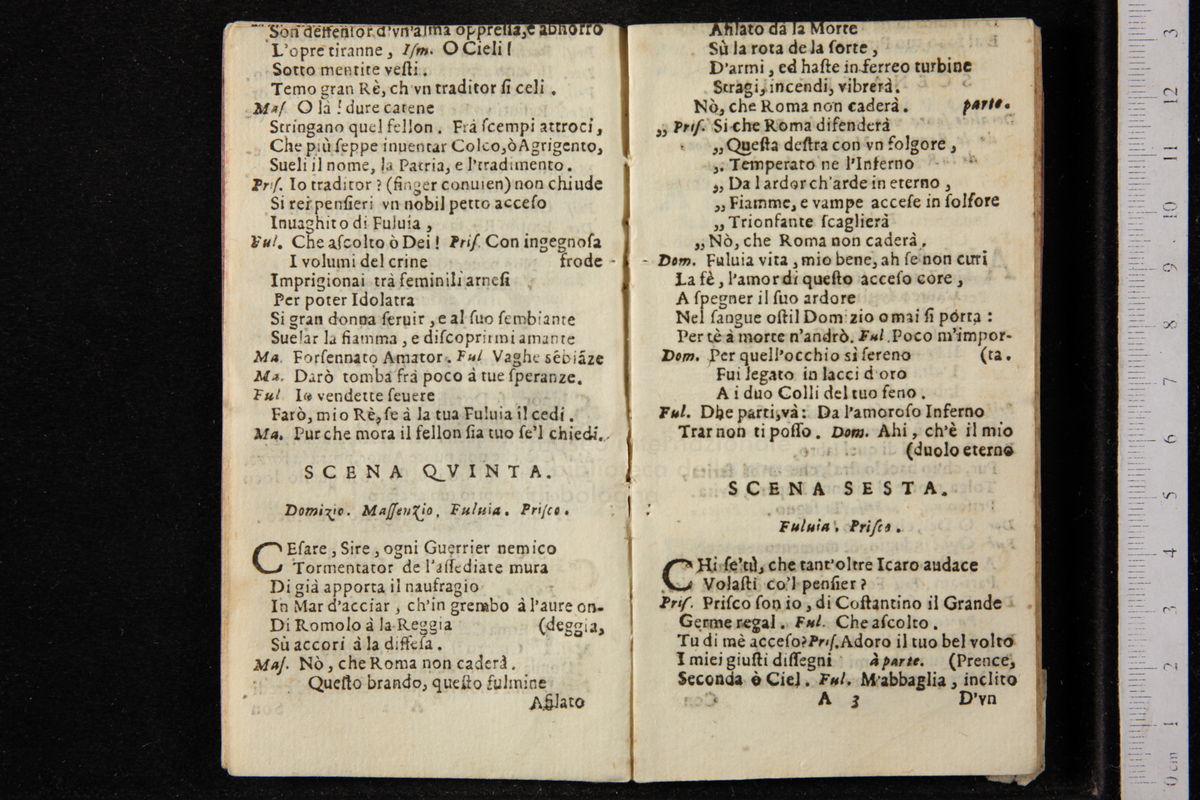 Son deffenſor d'vn'alma oppreſſa,e abhorro
L'opre tiranne, Iſm. O Cieli!
Sotto mentite veſti.
Temo gran Rè, ch'vn traditor ſi celi.
Maſ. O là! dure catene
Stringano quel fellon. Frà ſcempi attroci,
Che più ſeppe inuentar Colco,ò Agrigento,
Sueli il nome, la Patria, e l'tradimento.
Priſ. Io traditor? (finger conuien) non chiude
Si rei penſieri vn nobil petto acceſo
Inuaghito di Fuluia,
Ful. Che aſcolto ò Dei! Priſ. Con ingegnoſa
I volumi del crine frode
Imprigionai trà feminili arneſi
Per poter Idolatra
Si gran donna ſeruir, e al ſuo ſembiante
Suelar la fiamma, e diſcoprirmi amante
Ma. Forſennato Amator. Ful Vaghe sẽbiãze
Ma. Darò tomba frà poco à tue ſperanze.
Ful Io vendette ſeuere
Farò, mio Rè, ſe à la tua Fuluia il cedi.
Ma. Pur che mora il fellon ſia tuo ſe'l chiedi.
SCENA QVINTA.
Domizio. Maſſenzio. Fuluia. Priſco.
CEſare, Sire, ogni Guerrier nemico
Tormentator de l'aſſediate mura
Di già apporta il naufragio
In Mar d'acciar, ch'in grembo à l'aure on-
Di Romolo à la Reggia (deggia,
Sù accorì à la diffeſa.
Maſ. Nò, che Roma non caderà.
Queſto brando, queſto fulmine
Afilato
Afilato dà la Morte
Sù la rota de la ſorte,
D'armi, ed haſte in ferreo turbine
Stragi, incendi, vibrerà.
Nò, che Roma non caderà. parte.
„ Priſ. Si che Roma difenderà
„ Queſta deſtra con vn folgore,
„ Temperato ne l'Inferno
„ Da l ardor ch'arde in eterno,
„ Fiamme, e vampe acceſe in ſolfore
„ Trionfante ſcaglierà
„ Nò, che Roma non caderà.
Dom. Fuluia vita, mio bene, ah ſe non curi
La fè, l'amor di queſto acceſo core,
A ſpegner il ſuo ardore
Nel ſangue oſtil Domizio omai ſi porta:
Per tè à morte n'andrò. Ful. Poco m'impor-
Dom. Per quell'occhio sì ſereno (ta.
Fui legato in lacci d oro
A i duo Colli del tuo ſeno.
Ful. Dhe parti, và: Da l'amoroſo Inferno
Trar non ti poſſo. Dom. Ahi, ch'è il mio
(duolo eterno
SCENA SESTA.
Fuluia. Priſco.
CHi ſe'tù, che tant'oltre Icaro audace
Volaſti co'l penſier?
Priſ. Priſco ſon io, di Coſtantino il Grande
Germe regal. Ful. Che aſcolto.
Tu di mè acceſo? Priſ. Adoro il tuo bel volto
I miei giuſti diſſegni à parte. (Prence,
Seconda ò Ciel. Ful. M'abbaglia, inclito
A 3 D'vn